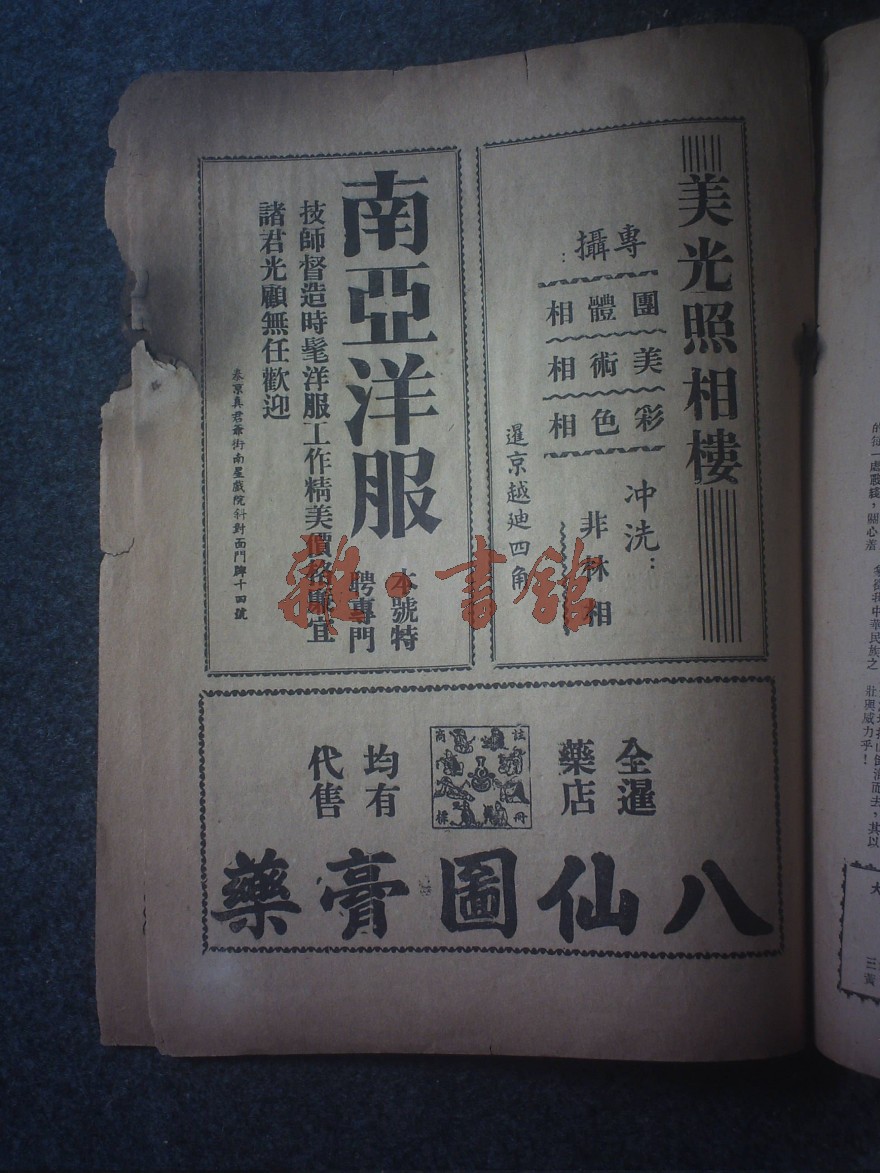 美光照相樓
專攝：
團體相
美術相
彩色相
冲洗：
非林相
暹京越廸四角
南亞洋服
本號特
聘專門
技師督造時髦洋服工作精美價格廉宜
諸君光顧無任歡迎
泰京真君爺街南星戲院斜對面門牌十四號
全暹
藥店
註冊
商標
均有
代售
八仙圖膏藥
雜·書館
壯與威力乎！